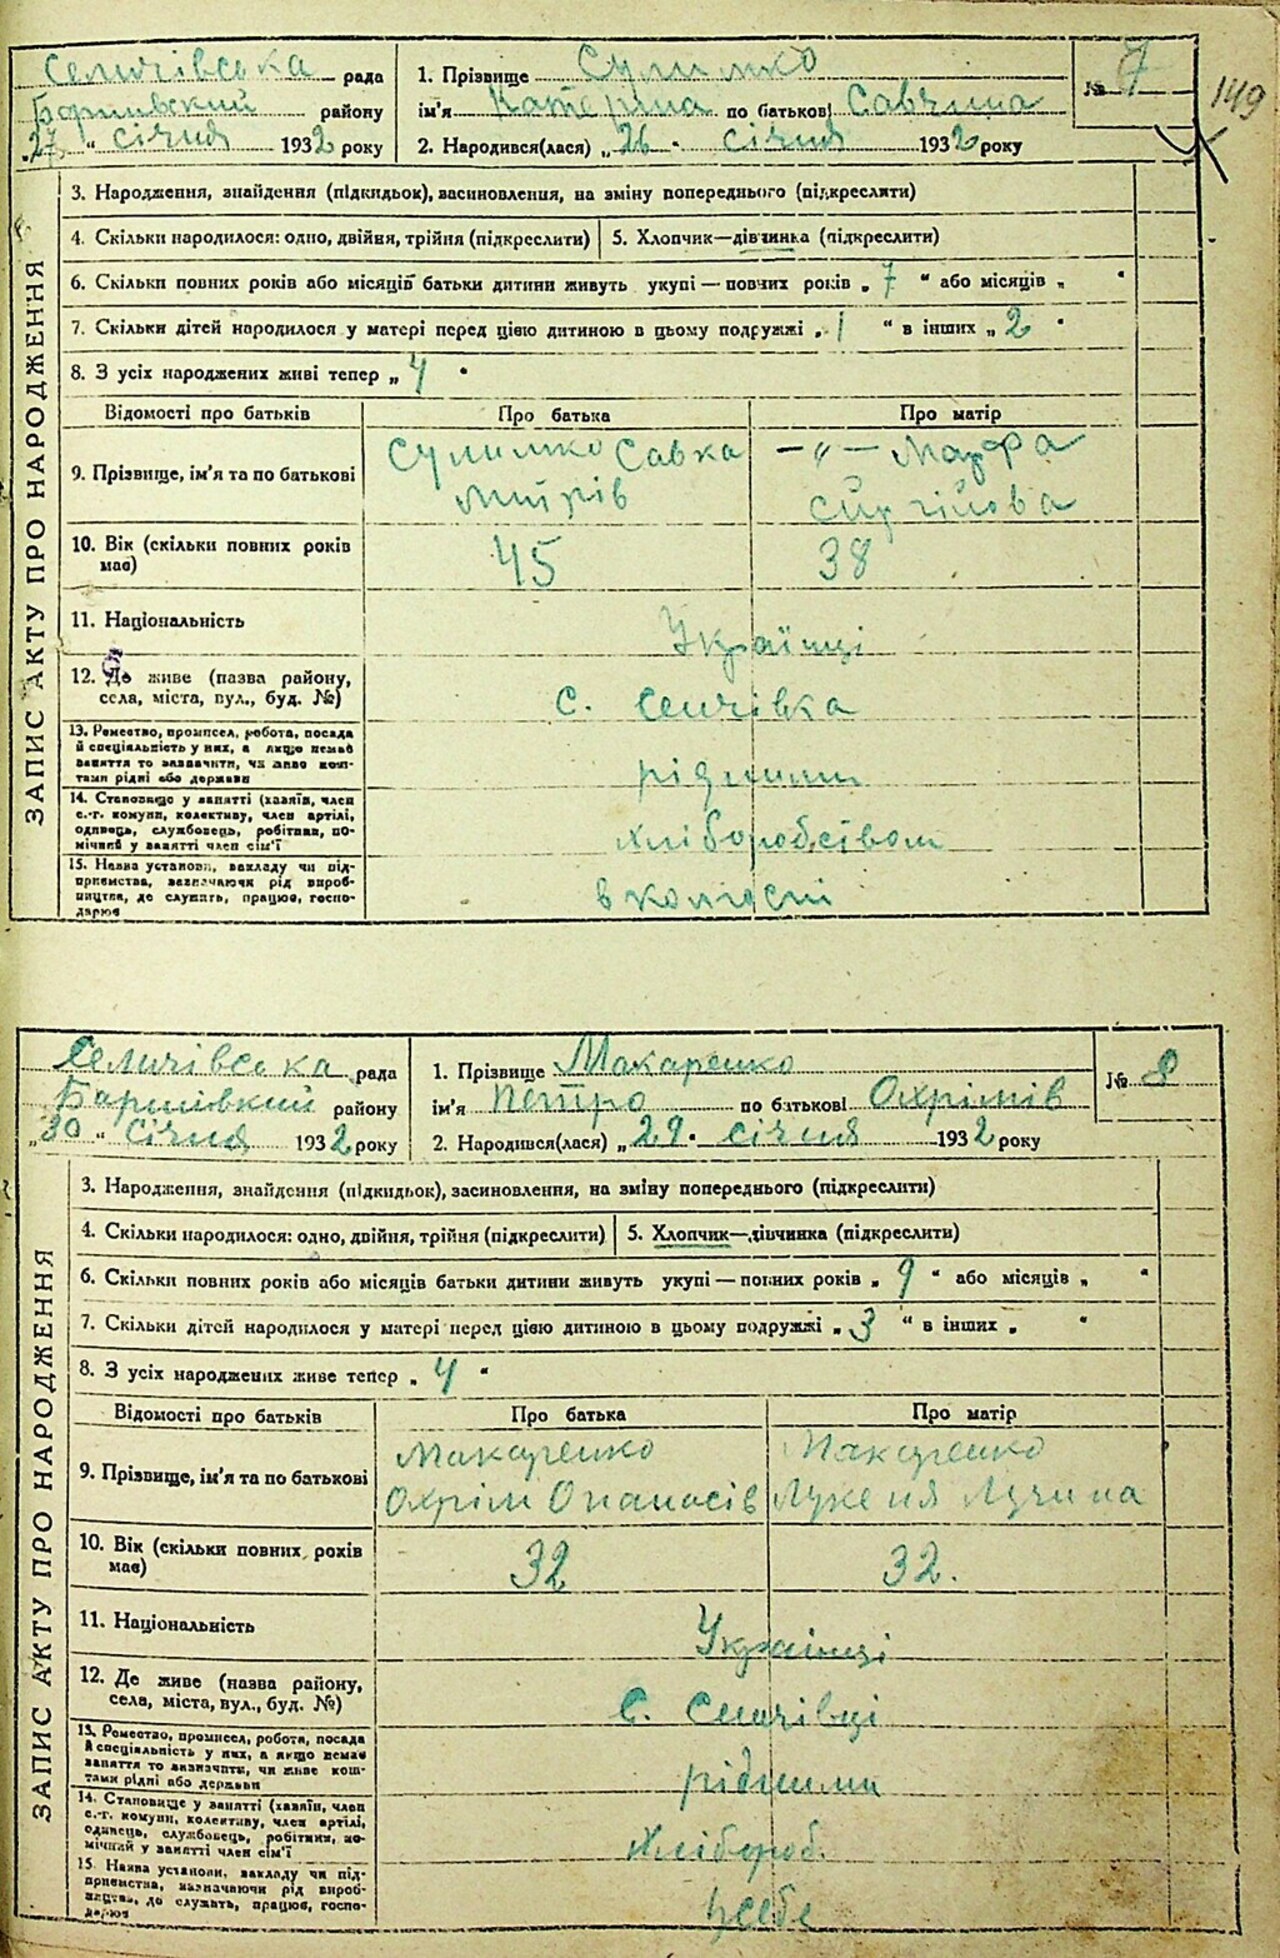 Селичівська рада
Баришівский району
„27" січня 1932 року
1. Прізвище Сулимко
ім'я Катерина по батькові Савчина
2. Народився(лася) „26" січня 1932 року
№ 7
149
ЗАПИС АКТУ ПРО НАРОДЖЕННЯ
3. Народження, знайдення (підкидьок), васиновлення, на зміну попереднього (підкреслити)
4. Скільки народилося: одно, двійня, трійня (підкреслити)
5. Хлопчик—дівчинка (підкреслити)
6. Скільки повних років або місяців батьки дитини живуть укупі — повних років „ 7 " або місяців „ "
7. Скільки дітей народилося у матері перед цією дитиною в цьому подружжі „ 1 " в інших „ 2 "
8. З усіх народжених живі тепер „ 4 "
Відомості про батьків Про батька Про матір
9. Прізвище, ім'я та по батькові
Сулимко Савка
—"— Марфа
10. Вік (скільки повних років має)
45 38
11. Національність
Українці
12. Де живе (назва району, села, міста, вул., буд. №)
с. Селичівка
13. Ремество, промисел, робота, посада
й спеціальність у них, а якщо немає
заняття то зазначити, чи живе кош-
тами рідні або держави
рідними
14. Становище у занятті (хазяїн, член
с.-г. комуни, колективу, член артілі,
одинець, службовець, робітник, по-
мічний у занятті член сім'ї
хліборобсівом
15. Назва установи, закладу чи під-
приємства, зазначаючи рід вироб-
ництва, де служить, працює, госпо-
дарює
в колгоспі
Селичівська рада
Баришівкий району
„30" січня 1932 року
1. Прізвище Макаренко
ім'я Петро по батькові Охрімів
2. Народився(лася) „29" січня 1932 року
№ 8
ЗАПИС АКТУ ПРО НАРОДЖЕННЯ
3. Народження, знайдення (підкидьок), засиновлення, на зміну попереднього (підкреслити)
4. Скільки народилося: одно, двійня, трійня (підкреслити)
5. Хлопчик—дівчинка (підкреслити)
6. Скільки повних років або місяців батьки дитини живуть укупі — повних років „ 9 " або місяців „ "
7. Скільки дітей народилося у матері перед цією дитиною в цьому подружжі „ 3 " в інших „ "
8. З усіх народжених живе тепер „ 4 "
Відомості про батьків Про батька Про матір
9. Прізвище, ім'я та по батькові
Макаренко
Охрім Опанасів
Макаренко
Лукешя Лучина
10. Вік (скільки повних років має)
32 32.
11. Національність
Українці
12. Де живе (назва району, села, міста, вул., буд. №)
С. Селичівці
13. Ремество, промисел, робота, посада
й спеціальність у них, а якщо немає
заняття то зазначити, чи живе кош-
тами рідні або держави
рідними
14. Становище у занятті (хазяїн, член
с.-г. комуни, колективу, член артілі,
одинець, службовець, робітник, по-
мічний у занятті член сім'ї
хлібороб.
15. Назва установи, закладу чи під-
приємства, зазначаючи рід вироб-
ництва, де служить, працює, госпо-
дарює
Усебе